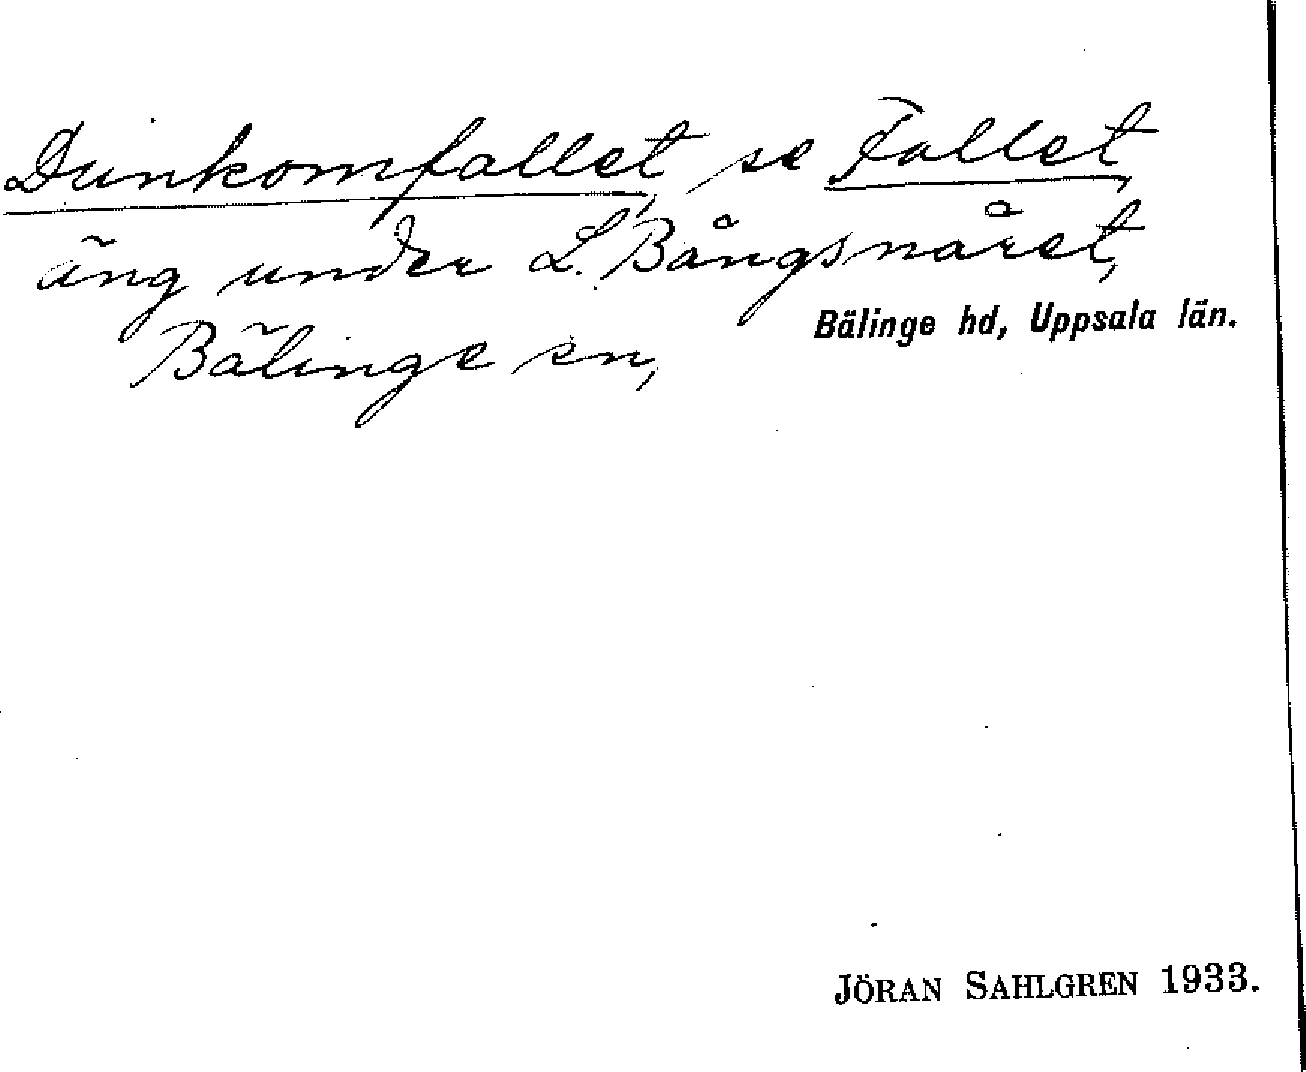 Dunkomfallet, se Fallet,
äng under L. Bångsnåret,
Bälinge hd, Uppsala län.
Bälinge sn,
JÖRAN SAHLGREN 1933.